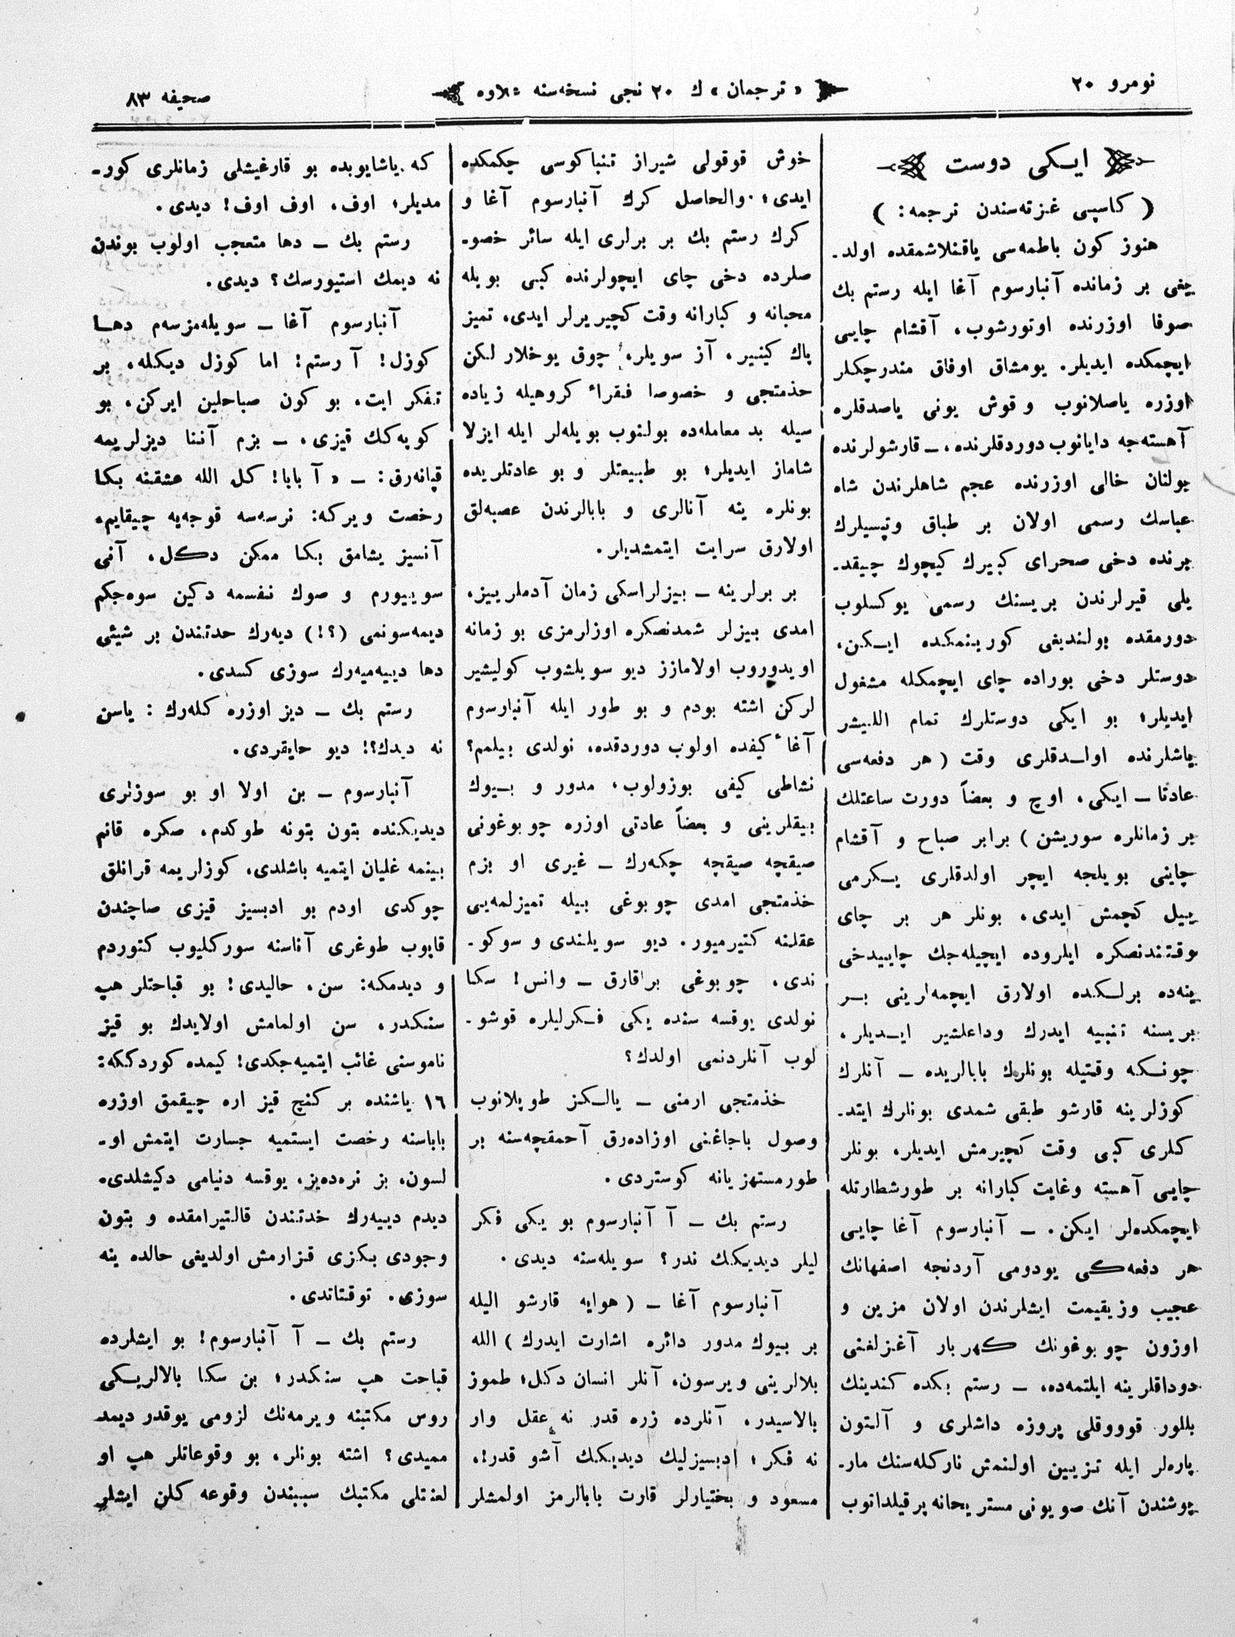 نومرو ٢٠
« ترجمان » ك ٢٠ نجی نسخه‌سنه علاوه
صحیفه ٨٣
ایـكی دوست
( كاسپی غزته‌سندن ترجمه: )
هنوز كون باطمه‌سی یاقنلاشمقده اولد-
یغی بر زمانده آنبارسوم آغا ایله رستم بك
صوفا اوزرنده اوتورشوب، آقشام چایی
ایچمكده ایدیلر. یومشاق اوفاق مندرچكلر
اوزره یاصلانوب و قوش یونی یاصدقلره
آهسته‌جه دایانوب دوردقلرنده، ـ قارشولرنده
بولنان خالی اوزرنده عجم شاهلرندن شاه
عباسك رسمی اولان بر طباق وتپسیلرك
برنده دخی صحرای كبیرك كیچوك چیقد-
یلی قیرلرندن بریسنك رسمی یوكسلوب
دورمقده بولندیغی كورینمكده ایـكن،
دوستلر دخی بوراده چای ایچمكله مشغول
ایدیلر؛ بو ایكی دوستلرك تمام اللیشر
یاشلرنده اولـدقلری وقت ( هر دفعه‌سی
عادتا ـ ایكی، اوچ و بعضاً دورت ساعتلك
بر زمانلره سوریشن ) برابر صباح و آقشام
چاینی بویلجه ایچر اولدقلری یـكرمی
ییل كچمش ایدی، بونلر هر بر چای
وقتندنصكره ایلروده ایچیله‌جك چاییدخی
ینه‌ده برلـكده اولارق ایچمه‌لرینی بـر
بریسنه تنبیه ایدرك وداعلشیر ایـدیلر.
چونـكه وقتیله بونلرك بابالریده ـ آنلرك
كوزلرینه قارشو طبقی شمدی بونلرك ایتد-
كلری كبی وقت كچیرمش ایدیلر، بونلر
چایی آهسته وغایت كبارانه بر طورشطارتله
ایچمكده‌لر ایكن. ـ آنبارسوم آغا چایی
هر دفعه‌كی یودومی آردنجه اصفهانك
عجیب وزیقیمت ایشلرندن اولان مزین و
اوزون چوبوغونك كهربار آغزلغنی
دوداقلرینه ایلتمه‌ده، ـ رستم بكده كندینك
بللور قوووقلی پروزه داشلری و آلـتون
پاره‌لر ایله تزیین اولنمش ناركله‌سنك مار-
پوشندن آنك صویونی مستریحانه پرقیلداتوب
خوش قوقولی شیراز تنباكوسی چكمكده
ایدی؛ والحاصل كرك آنبارسوم آغا و
كرك رستم بك بر برلری ایله سائر خصو-
صلرده دخی چای ایچولرنده كبی بویله
محبانه و كبارانه وقت كچیریرلر ایدی، تمیز
پاك كینیر، آز سویلر، چوق یوخلار لـكن
خذمتجی و خصوصا فقراٴ كروهیله زیاده
سیله بد معامله‌ده بولنوب بویله‌لر ایله ایزلا
شاماز ایدیلر؛ بو طبیعتلر و بو عادتلریده
بونلره ینه آنالری و بابالرندن عصبه‌لق
اولارق سرایت ایتمشدیلر.
بر برلرینه ـ بیزلراسكی زمان آدملرییز،
امدی بیزلر شمدنصكره اوزلرمزی بو زمانه
اویدوروب اولامازز دیو سویلشوب كولیشیر
لركن اشته بودم و بو طور ایله آنبارسوم
آغاٴ كیفده اولوب دوردقده، نولدی بیلمم؟
نشاطی كیفی بوزولوب، مدور و بـیوك
بیقلرینی و بعضاً عادتی اوزره چوبوغونی
صیقچه صیقچه چكه‌رك ـ غیری او بزم
خذمتجی امدی چوبوغی بیله تمیزلمه‌یی
عقلنه كتیرمیور. دیو سویلندی و سوكو-
ندی. چوبوغی براقارق ـ وانس! سكا
نولدی یوقسه سنده یكی فـكرلیلره قوشو-
لوب آنلردنمی اولدك؟
خذمتجی ارمنی ـ یالـكز طوپلانوب
وصول باجاغنی اوزاده‌رق آحمقچه‌سنه بر
طورمستهزیانه كوستردی.
رستم بك ـ آ آنبارسوم بو یكی فكر
لیلر دیدیكك ندر؟ سویله‌سنه دیدی.
آنبارسوم آغا ـ ( هوایه قارشو الیله
بر بیوك مدور دائره اشارت ایدرك ) الله
بلالرینی ویرسون، آنلر انسان دكل؛ طموز
بالاسیدر، آنلرده زره قدر نه عقل وار
نه فكر؛ ادبسیزلیك دیدیكك آشو قدر!،
مسعود و بختیارلر قارت بابالرمز اولمشلر
كه یاشایوبده بو قارغیشلی زمانلری كور-
مدیلر؛ اوف، اوف اوف! دیدی.
رستم بك ـ دها متعجب اولوب بوندن
نه دیمك استیورسك؟ دیدی.
آنبارسوم آغا ـ سویله‌مزسه‌م دهـا
كوزل! آ رستم! اما كوزل دیكله، بر
تفكر ایت، بو كون صباحلین ایركن، بو
كوپه‌كك قیزی، ـ بزم آننا دیزلریمه
قپانه‌رق: ـ « آ بابا! كل الله عشقنه بكا
رخصت ویركه: نرسه‌سه قوجه‌یه چیقایم،
آنسیز یشامق بكا ممكن دكل، آنی
سوییورم و صوك نفسمه دكین سوه‌جكم
دیمه‌سونمی (؟!) دیه‌رك حدتندن بر شیئی
دها دییه‌میه‌رك سوزی كسدی.
رستم بك ـ دیز اوزره كله‌رك : یاسن
نه دیدك؟! دیو حایقردی.
آنبارسوم ـ بن اولا او بو سوزلری
دیدیكنده بتون بتونه طوكدم، صكره قانم
بینمه غلیان ایتمیه باشلدی، كوزلریمه قرانلق
چوكدی اودم بو ادبسیز قیزی صاچندن
قاپوب طوغری آناسنه سوركلیوب كتوردم
و دیدمكه: سن، حالیدی! بو قباحتلر هپ
سنكدر، سن اولمامش اولایدك بو قیز
ناموسنی غائب ایتمیه‌جكدی! كیمده كوردككه:
١٦ یاشنده بر كنج قیز اره چیقمق اوزره
باباسنه رخصت ایستمیه جسارت ایتمش او-
لسون، بز نره‌ده‌یز، یوقسه دنیامی دكیشلدی،
دیدم دییه‌رك خدتندن قالتیرامقده و بتون
وجودی بكزی قزارمش اولدیغی حالده ینه
سوزی. توقتاتدی.
رستم بك ـ آ آنبارسوم! بو ایشلرده
قباحت هپ سنكدر؛ بن سكا بالالریـكی
روس مكتبنه ویرمه‌نك لزومی یوقدر دیمد
ممیدی؟ اشته بونلر، بو وقوعاتلر هپ او
لعنتلی مكتبك سببندن وقوعه كلن ایشلر